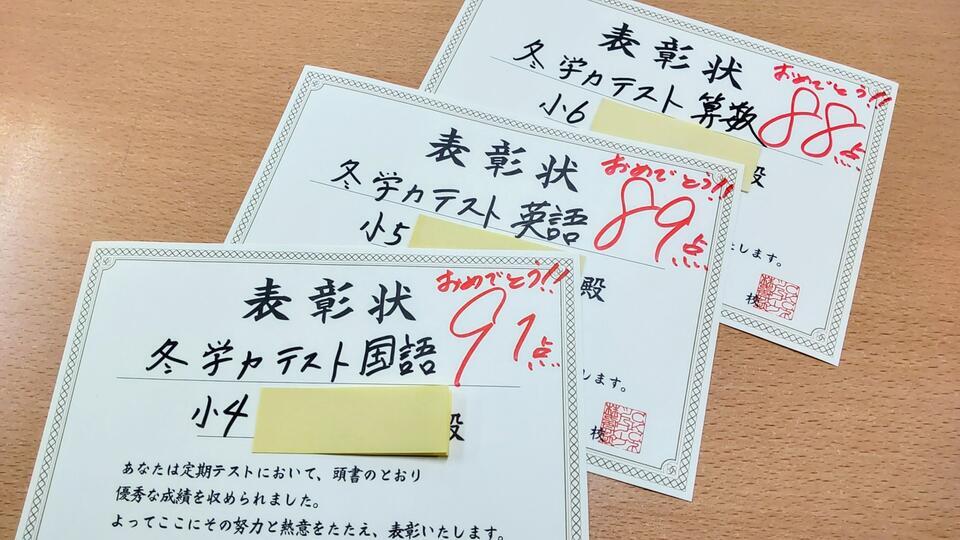 表彰状
おめでとう!!
冬 学力テスト 算数
88点
小6
殿
たします。
校
表彰状
おめでとう!!
冬 学力テスト 英語
89点
小5
殿
します。
校
表彰状
おめでとう!!
冬 学力テスト 国語
91点
小4
殿
あなたは定期テストにおいて、頭書のとおり
優秀な成績を収められました。
よってここにその努力と熱意をたたえ、表彰いたします。